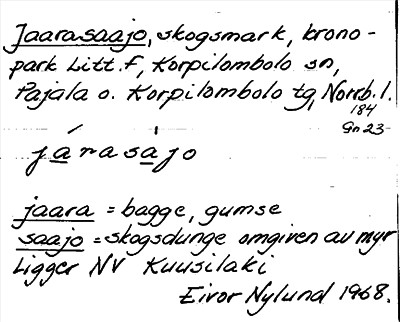 Jaarasaajo, skogsmark, krono-
park Litt. F, Korpilombolo sn,
Pajala o. Korpilombolo tg, Norrb. l.
184
Gn 23
jarasajo
jaara = bagge, gumse
saajo = skogsdunge omgiven av myr
Ligger NV Kuusilaki
Eivor Nylund 1968.